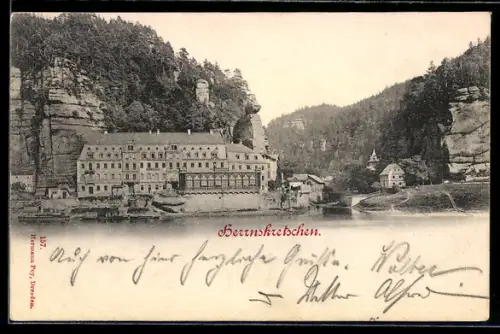 Herrnskretschen.
157.
Hermann Poy, Dresden.
Auch von hier herzliche Grüsse. Walter
Alfred